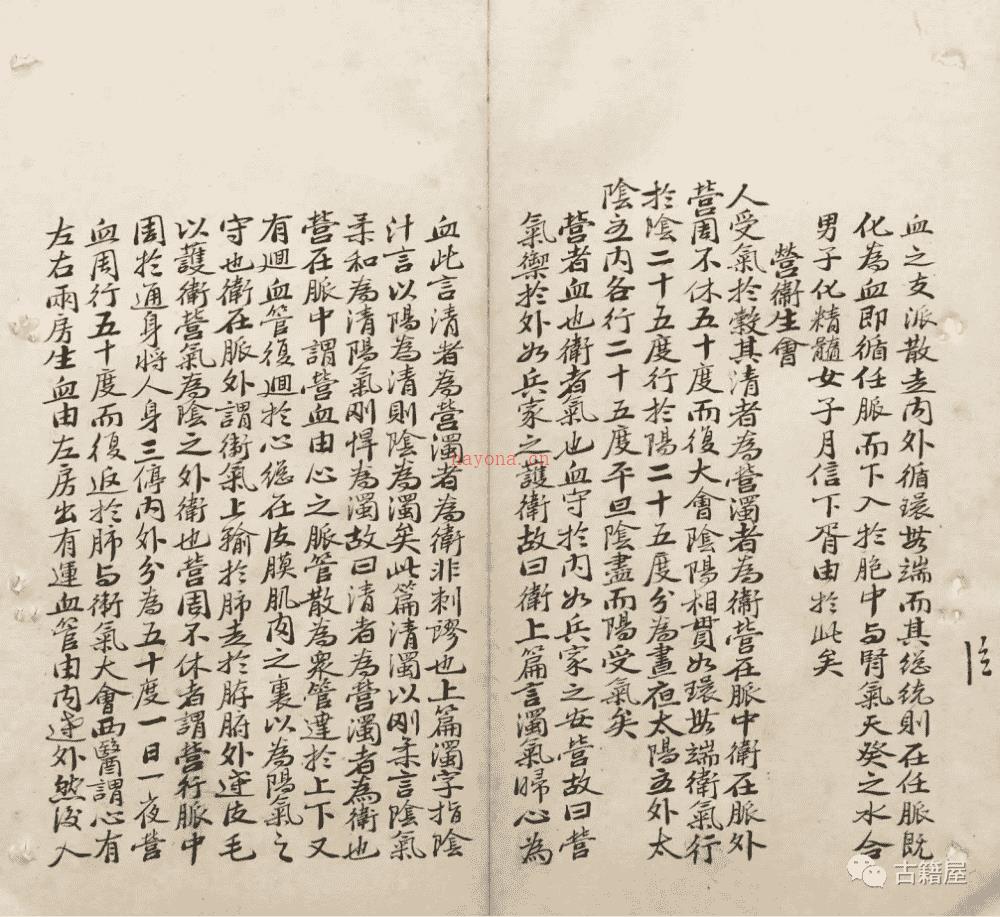 血之支派散走內外循環無端而其總統則在任脈既
化為血即循任脈而下入於胞中与腎氣天癸之水合
男子化精髓女子月信下胥由於此矣
營衛生會
人受氣於穀其清者為營濁者為衛營在脈中衛在脈外
營周不休五十度而復大會陰陽相貫如環無端衛氣行
於陰二十五度行於陽二十五度分為晝夜太陽主外太
陰主內各行二十五度平旦陰盡而陽受氣矣
營者血也衛者氣也血守於內如兵家之安營故曰營
氣禦於外如兵家之護衛故曰衛上篇言濁氣歸心為
血此言清者為營濁者為衛非刺謬也上篇濁字指陰
汁言以陽為清則陰為濁矣此篇清濁以剛柔言陰氣
柔和為清陽氣剛悍為濁故曰清者為營濁者為衛也
營在脈中謂營血由心之脈管散為衆管達於上下又
有迴血管復迴於心總在皮膜肌肉之裏以為陽氣之
守也衛在脈外謂衛氣上輸於肺走於腑腑外達皮毛
以護衛營氣為陰之外衛也營周不休者謂營行脈中
周於通身將人身三停內外分為五十度一日一夜營
血周行五十度而復返於肺与衛氣大會西醫謂心有
左右兩房生血由左房出有運血管由內達外然後入
hayona.cn
古籍屋